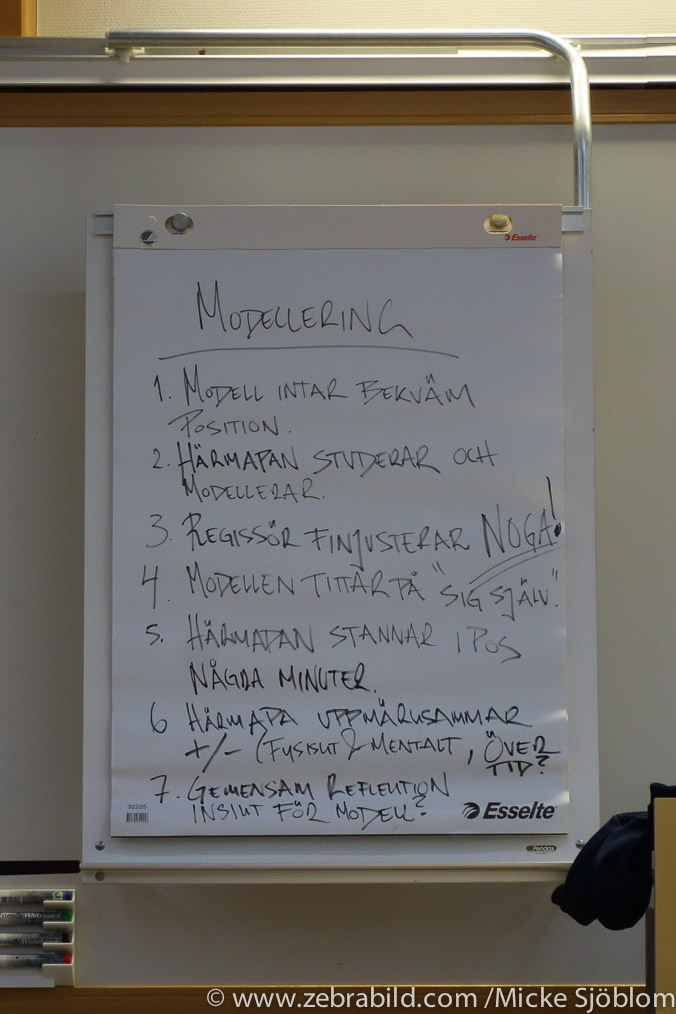 Esselte
MODELLERING
1. MODELL INTAR BEKVÄM
POSITION.
2. HÄRMAPAN STUDERAR OCH
MODELLERAR.
3. REGISSÖR FINJUSTERAR NOGA!
4. MODELLEN TITTAR PÅ "SIG SJÄLV".
5. HÄRMAPAN STANNAR I POS
NÅGRA MINUTER.
6 HÄRMAPA UPPMÄRKSAMMAR
+/- (FYSISKT & MENTALT, ÖVER
TID?
7. GEMENSAM REFLEKTION
INSIKT FÖR MODELL?
32225
Esselte
Pendax
© www.zebrabild.com /Micke Sjöblom